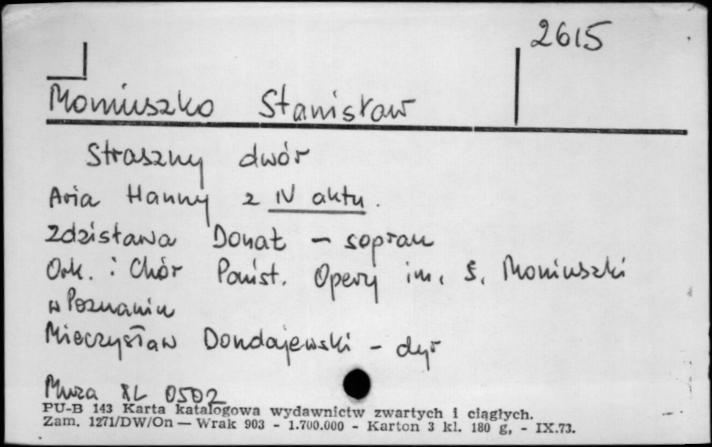 2615
Moniuszko Stanisław
Straszny dwór
Aria Hanny z IV aktu.
Zdzisława Donat – sopran
Ork. i Chór Państ. Opery im. S. Moniuszki
w Poznaniu
Mieczysław Dondajewski – dyr
Muza XL 0502
PU-B 143 Karta katalogowa wydawnictw zwartych i ciągłych.
Zam. 1271/DW/On — Wrak 903 - 1.700.000 - Karton 3 kl. 180 g, - IX.73.